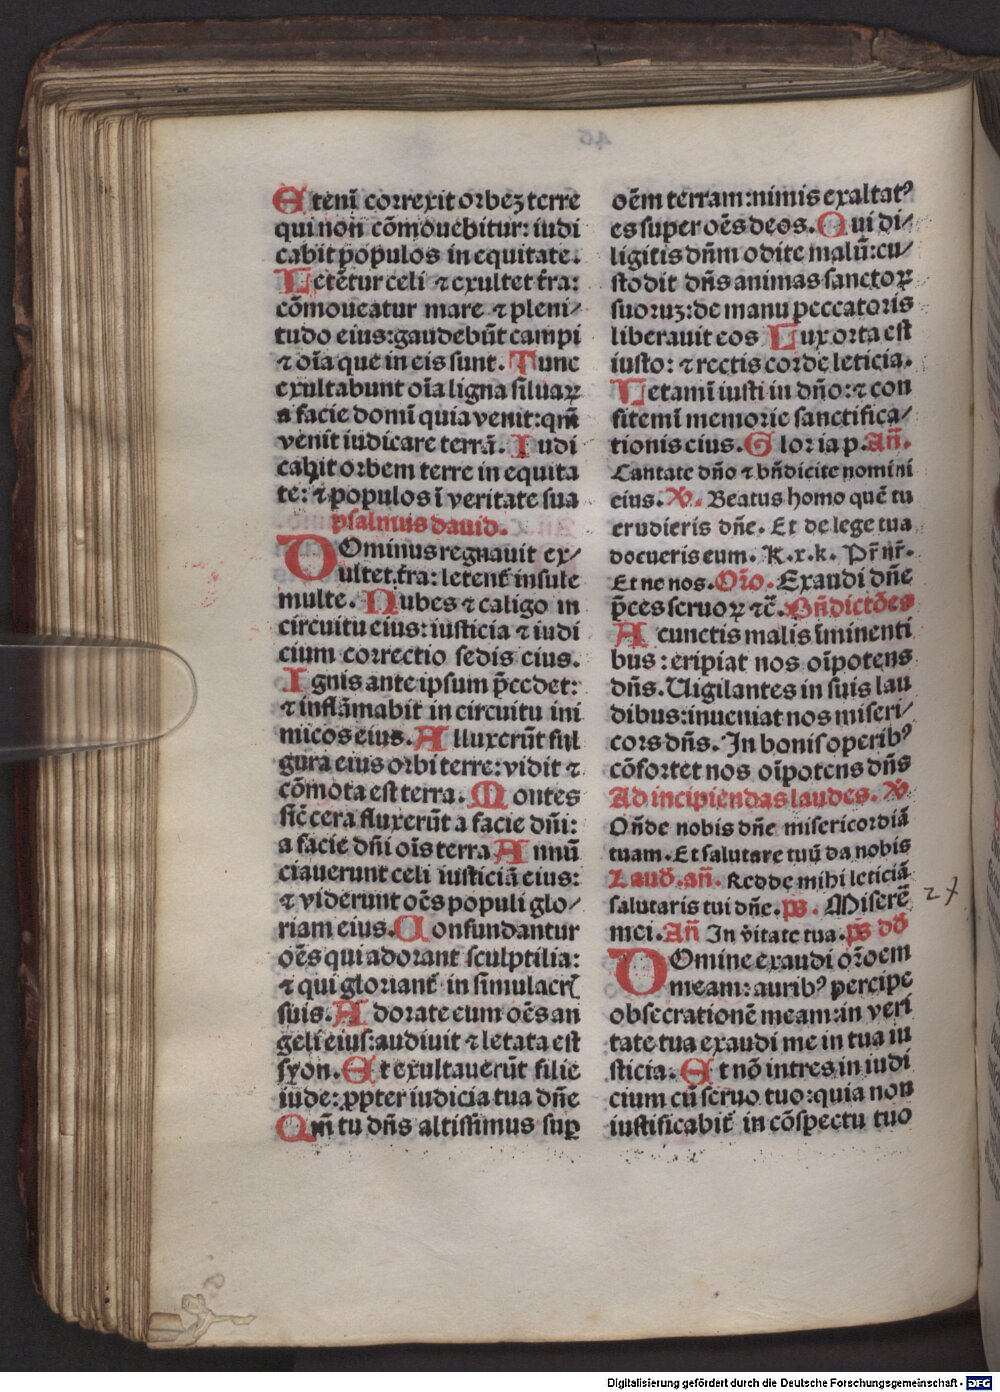 Etenī correxit orbeʒ terre
qui non cōmouebitur: iudi
cabit populos in equitate.
Letētur celi ⁊ exultet t̄ra:
cōmoueatur mare ⁊ pleni⸗
tudo eius: gaudebūt campi
⁊ oīa que in eis sunt. Tunc
exultabunt oīa ligna siluaꝝ
a facie domī quia venit: qm̄
venit iudicare terrā. Iudi
cabit orbem terre in equita
te: ⁊ populos ī veritate sua
psalmus dauid.
DOminus regnauit ex⸗
ultet t̄ra: letent̄ insule
multe. Nubes ⁊ caligo in
circuitu eius: iusticia ⁊ iudi
cium correctio sedis eius.
Ignis ante ipsum p̄cedet:
⁊ inflāmabit in circuitu ini
micos eius. Alluxerūt ful
gura eius orbi terre: vidit ⁊
cōmota est terra. Montes
sic̄ cera fluxerūt a facie dn̄i:
a facie dn̄i oīs terra Annū
ciauerunt celi iusticiā eius:
⁊ viderunt oēs populi glo⸗
riam eius. Confundantur
oēs qui adorant sculptilia:
⁊ qui gloriant̄ in simulacrꝭ
suis. Adorate eum oēs an
geli eius: audiuit ⁊ letata est
syon. Et exultauerūt filie
iude: ꝓpter iudicia tua dn̄e
Qm̄ tu dn̄s altissimus suꝑ
oēm terram: nimis exaltatꝰ
es super oēs deos. Qui di⸗
ligitis dn̄m odite malū: cu⸗
stodit dn̄s animas sanctoꝝ
suoruʒ: de manu peccatoris
liberauit eos Lux orta est
iusto: ⁊ rectis corde leticia.
Letamī iusti in dn̄o: ⁊ con
fitemī memorie sanctifica⸗
tionis eius. Gloria p. An̄.
Cantate dn̄o ⁊ bn̄dicite nomini
eius. V̄. Beatus homo quē tu
erudieris dn̄e. Et de lege tua
docueris eum. K. x. k. Pr̄ nr̄.
Et ne nos. Or̄o. Exaudi dn̄e
p̄ces seruoꝝ ⁊c̄. Bn̄dictōes
A cunctis malis īminenti
bus: eripiat nos oīpotens
dn̄s. Uigilantes in suis lau
dibus: inueniat nos miseri⸗
cors dn̄s. In bonis operibꝰ
cōfortet nos oīpotens dn̄s
Ad incipiendas laudes. V̄.
Ōn̄de nobis dn̄e misericordiā
tuam. Et salutare tuū da nobis
Laud̄. an̄. Redde mihi leticiā
salutaris tui dn̄e. ps̄. Miserē
mei. An̄ In v̄itate tua. ps̄ dd̄
DOmine exaudi or̄oem
meam: auribꝰ percipe
obsecrationē meam: in veri
tate tua exaudi me in tua iu
sticia. Et nō intres in iudi
cium cū seruo tuo: quia non
iustificabit̄ in cōspectu tuo
27
Digitalisierung gefördert durch die Deutsche Forschungsgemeinschaft - DFG